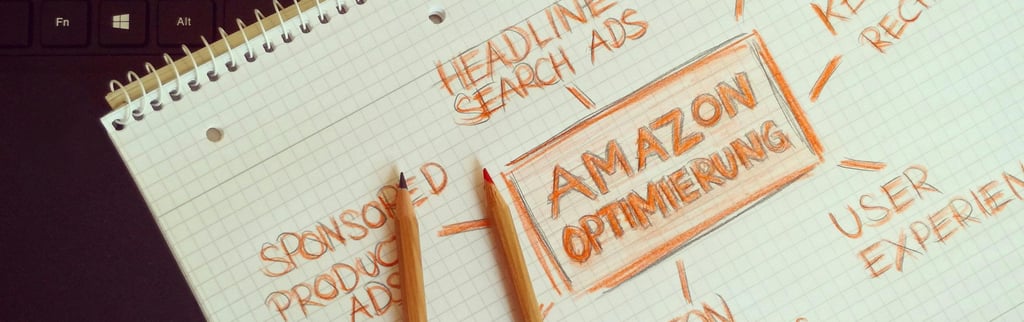 Fn
Alt
HEADLINE
SEARCH ADS
AMAZON
OPTIMIERUNG
SPONSORED
PRODUCT
ADS
USER